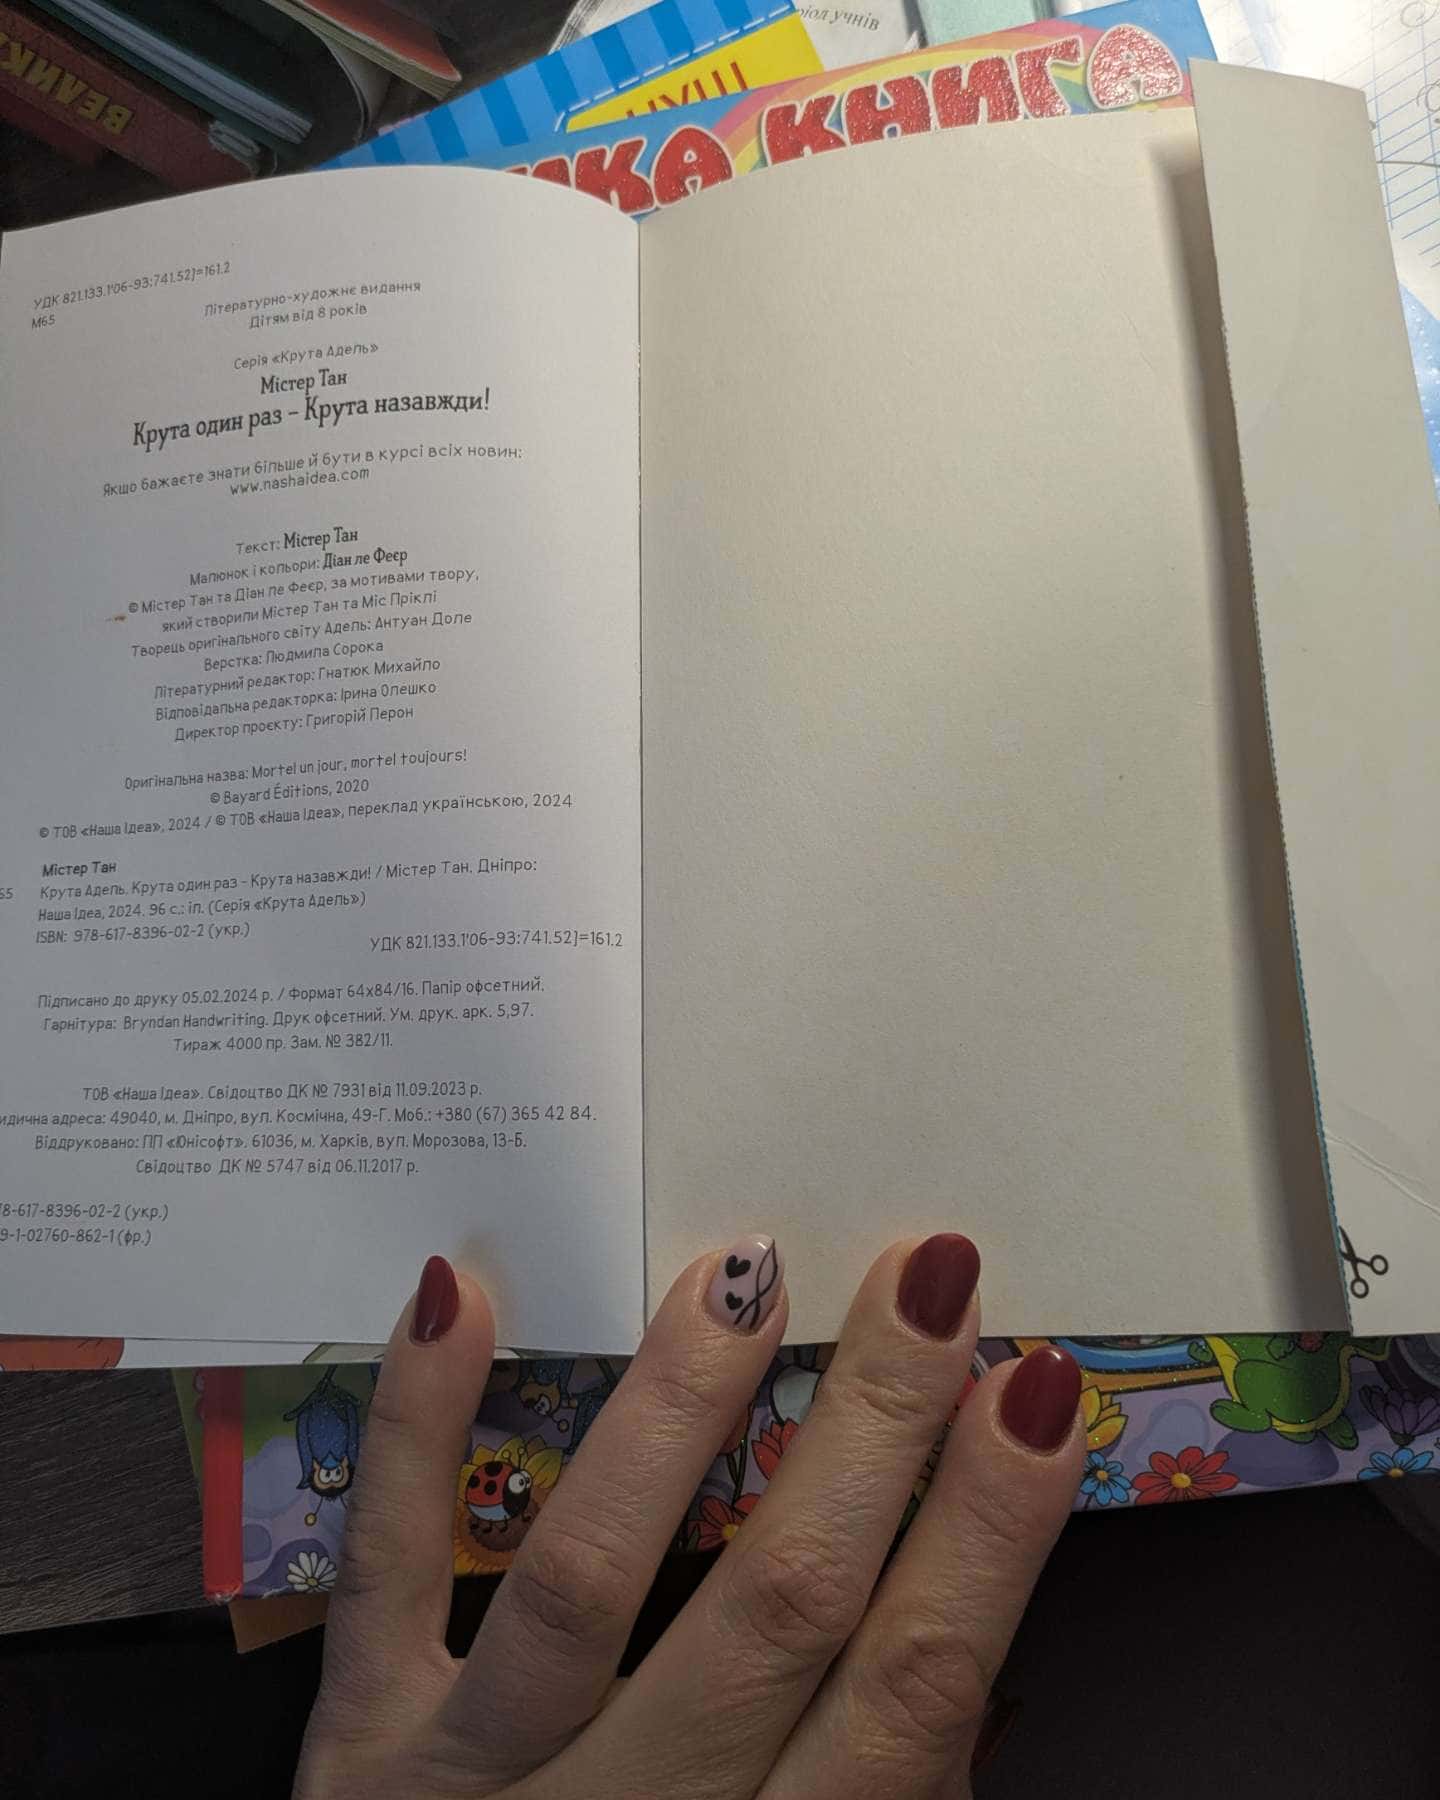 ВЕЛИК
ріол учнів
НУШ
ИКА КНИГА
УДК 821.133.1'06-93:741.52]=161.2
М65
Літературно-художнє видання
Дітям від 8 років
Серія «Крута Адель»
Містер Тан
Крута один раз – Крута назавжди!
Якщо бажаєте знати більше й бути в курсі всіх новин:
www.nashaidea.com
Текст: Містер Тан
Малюнок і кольори: Діан ле Феєр
© Містер Тан та Діан ле Феєр, за мотивами твору,
який створили Містер Тан та Міс Пріклі
Творець оригінального світу Адель: Антуан Доле
Верстка: Людмила Сорока
Літературний редактор: Гнатюк Михайло
Відповідальна редакторка: Ірина Олешко
Директор проєкту: Григорій Перон
Оригінальна назва: Mortel un jour, mortel toujours!
© Bayard Éditions, 2020
© ТОВ «Наша Ідеа», 2024 / © ТОВ «Наша Ідеа», переклад українською, 2024
Містер Тан
65 Крута Адель. Крута один раз – Крута назавжди! / Містер Тан. Дніпро:
Наша Ідеа, 2024. 96 с.: іл. (Серія «Крута Адель»)
ISBN: 978-617-8396-02-2 (укр.)
УДК 821.133.1'06-93:741.52]=161.2
Підписано до друку 05.02.2024 р. / Формат 64х84/16. Папір офсетний.
Гарнітура: Bryndan Handwriting. Друк офсетний. Ум. друк. арк. 5,97.
Тираж 4000 пр. Зам. № 382/11.
ТОВ «Наша Ідеа». Свідоцтво ДК № 7931 від 11.09.2023 р.
идична адреса: 49040, м. Дніпро, вул. Космічна, 49-Г. Моб.: +380 (67) 365 42 84.
Віддруковано: ПП «Юнісофт». 61036, м. Харків, вул. Морозова, 13-Б.
Свідоцтво ДК № 5747 від 06.11.2017 р.
78-617-8396-02-2 (укр.)
9-1-02760-862-1 (фр.)